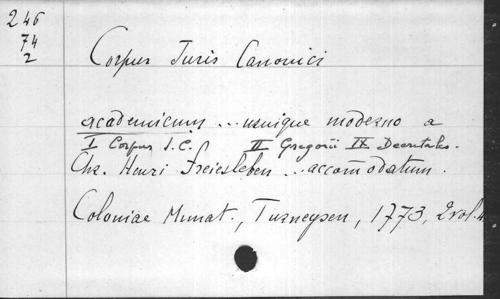 246
74
2
Corpus Juris Canonici
academicum ... usuique moderno a
I Corpus J.C. II Gregorii IX Decretales.
Chr. Henri Freiesleben ... accomodatum.
Coloniae Munat., Turneysen, 1773, 2 vol. 4